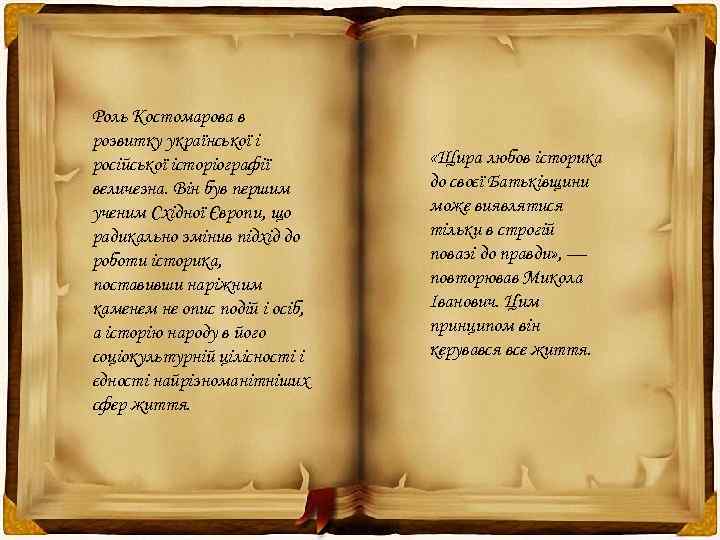 Роль Костомарова в
розвитку української і
російської історіографії
величезна. Він був першим
ученим Східної Європи, що
радикально змінив підхід до
роботи історика,
поставивши наріжним
каменем не опис подій і осіб,
а історію народу в його
соціокультурній цілісності і
єдності найрізноманітніших
сфер життя.
«Щира любов історика
до своєї Батьківщини
може виявлятися
тільки в строгій
повазі до правди», —
повторював Микола
Іванович. Цим
принципом він
керувався все життя.